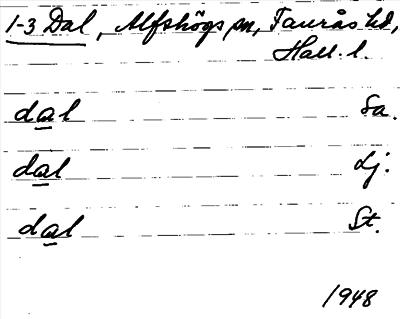 1-3 Dal, Alfshögs sn, Faurås hd,
Hall. l.
dal Sa.
dal Lj.
dal St.
1948